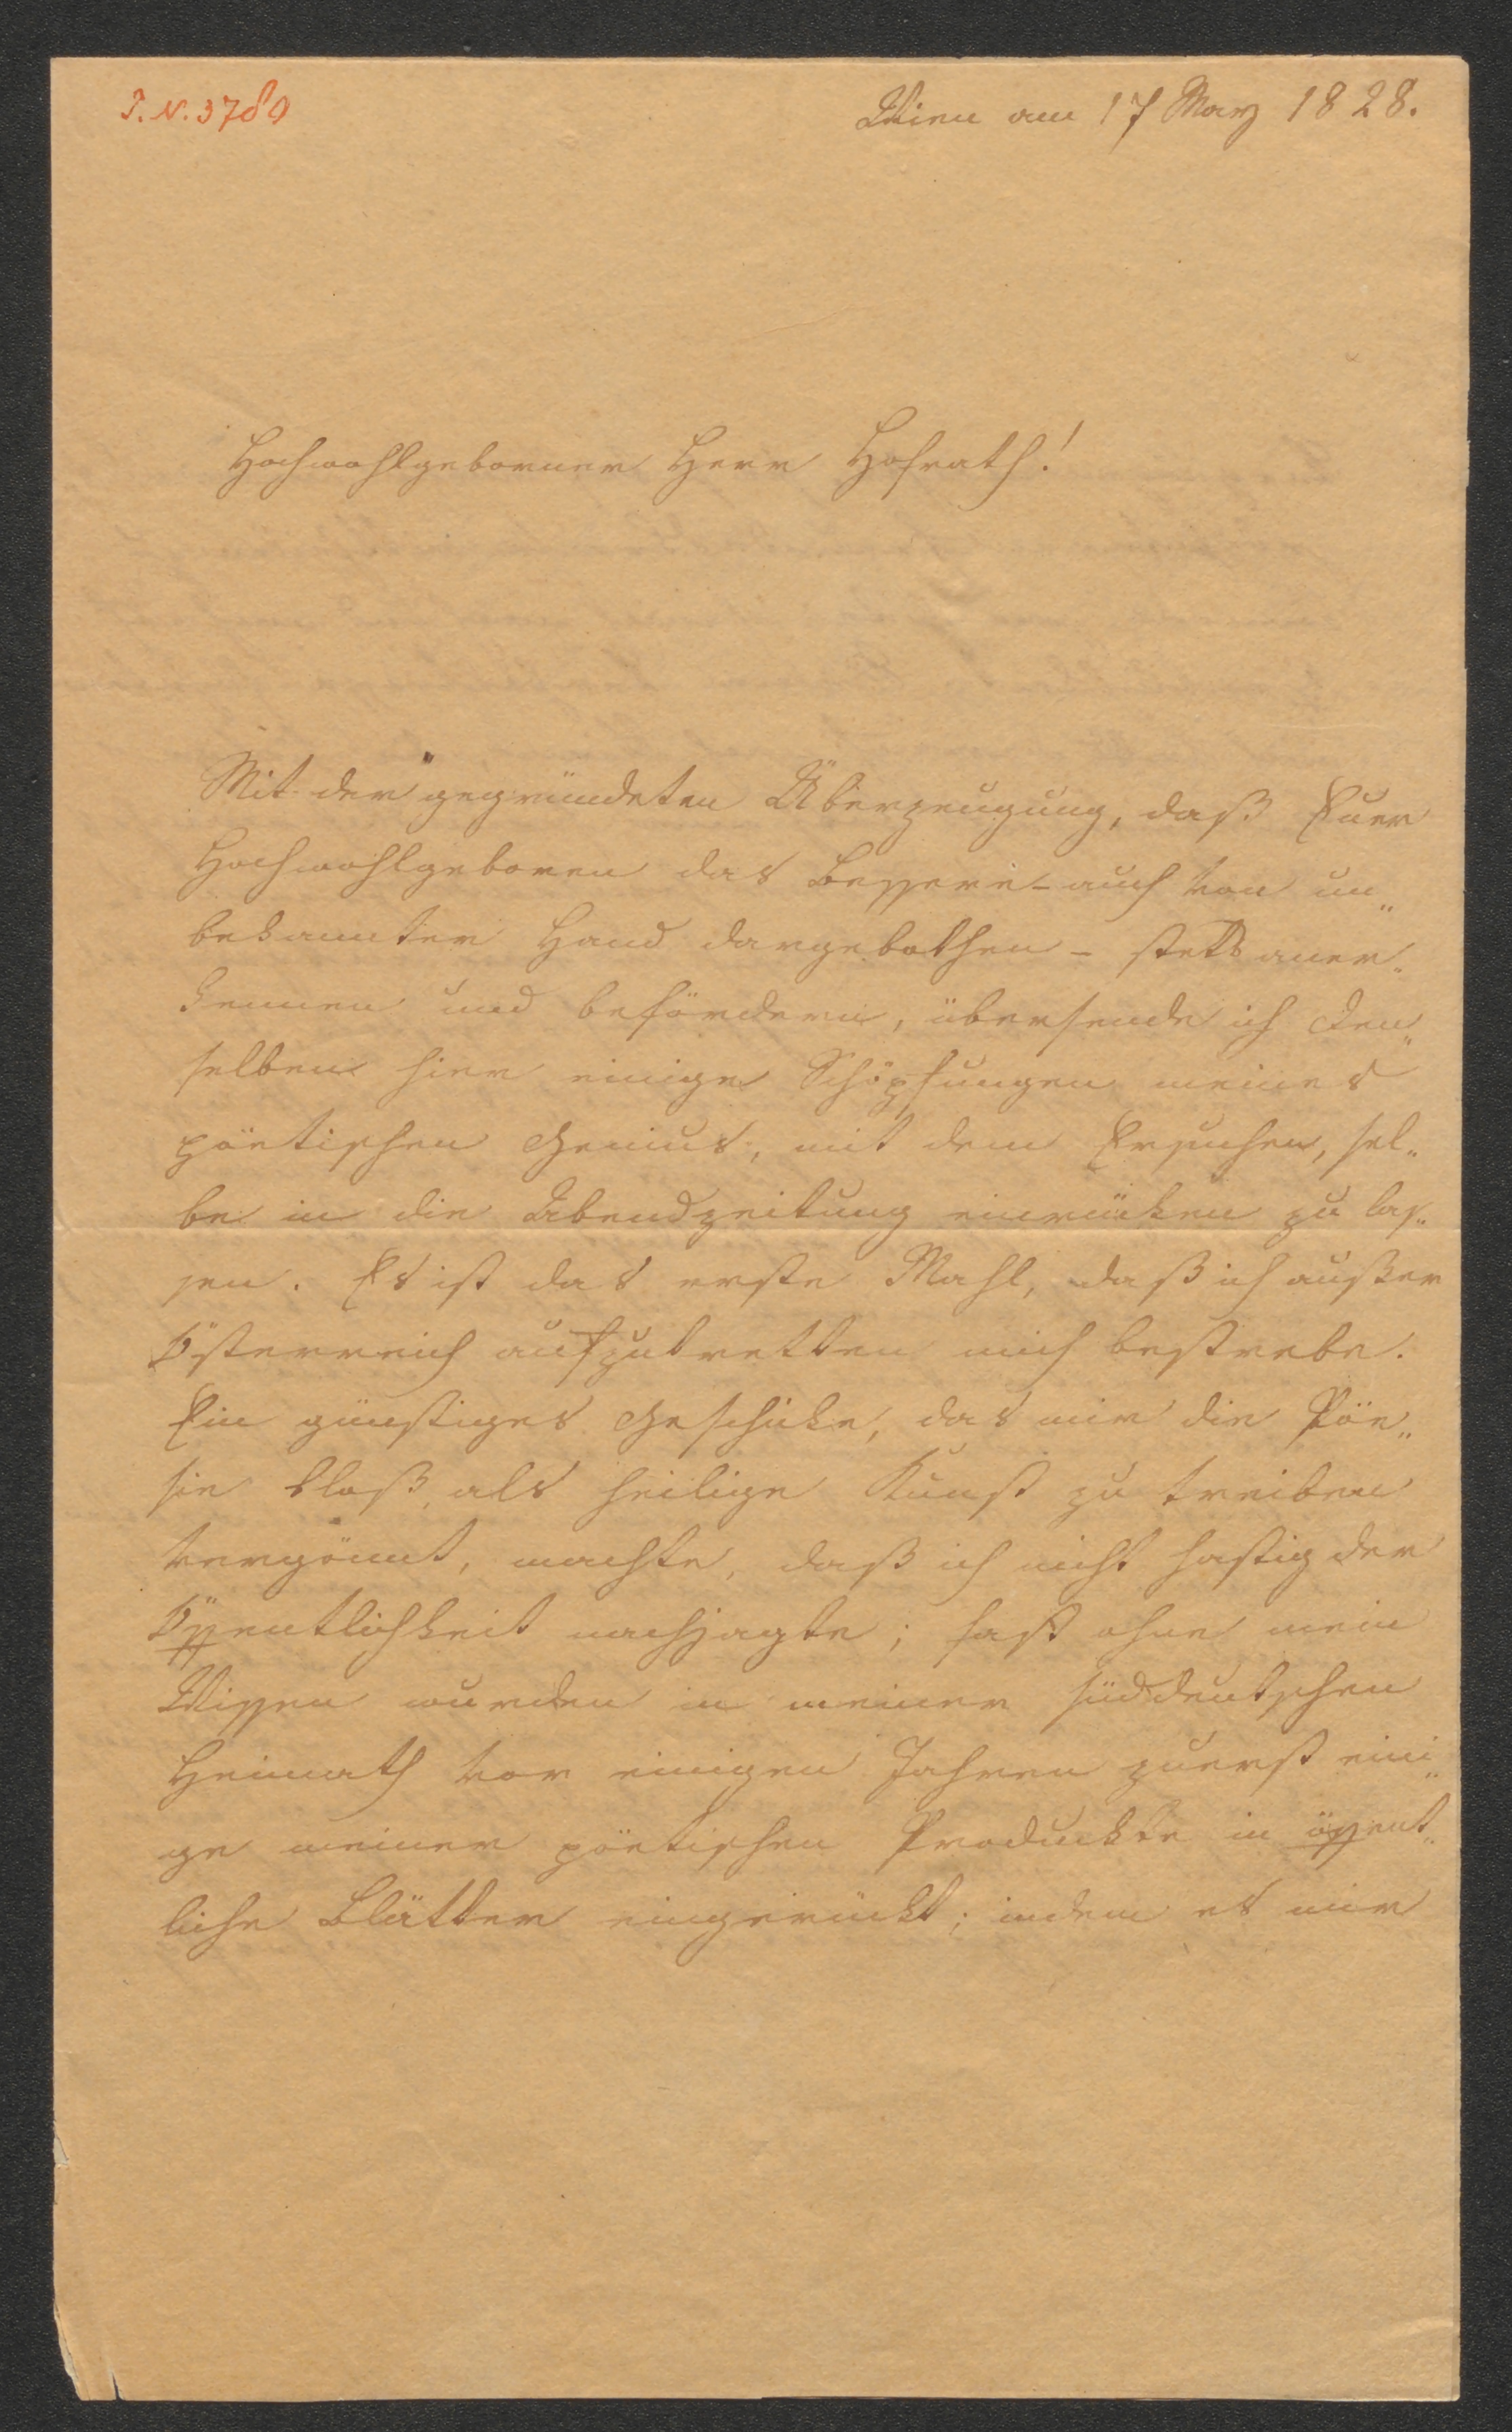 I. N. 3789
Wien am 17 März 1828.
Hochwohlgeborner Herr Hofrath!
Mit der gegründeten Überzeugung, daß Euer
Hochwohlgeboren das Bessere - auch von un„
bekannter Hand dargebothen - stets aner„
kennen und befördern, übersende ich Den„
selben hier einige Schöpfungen meines
poëtischen Genius, mit dem Ersuchen, sel„
be in die Abendzeitung einrücken zu las„
sen. Es ist das erste Mahl, daß ich außer
Österreich aufzutretten mich bestrebe.
Ein günstiges Geschicke, das mir die Poë„
sie bloß als heilige Kunst zu treiben
vergönnt, machte, daß ich nicht hastig der
Öffentlichkeit nachjagte; fast ohne mein
Wissen wurden in meiner süddeutschen
Heimath vor einigen Jahren zuerst eini„
ge meiner poëtischen Produckte in öffent„
liche Blätter eingerückt; indem es mir